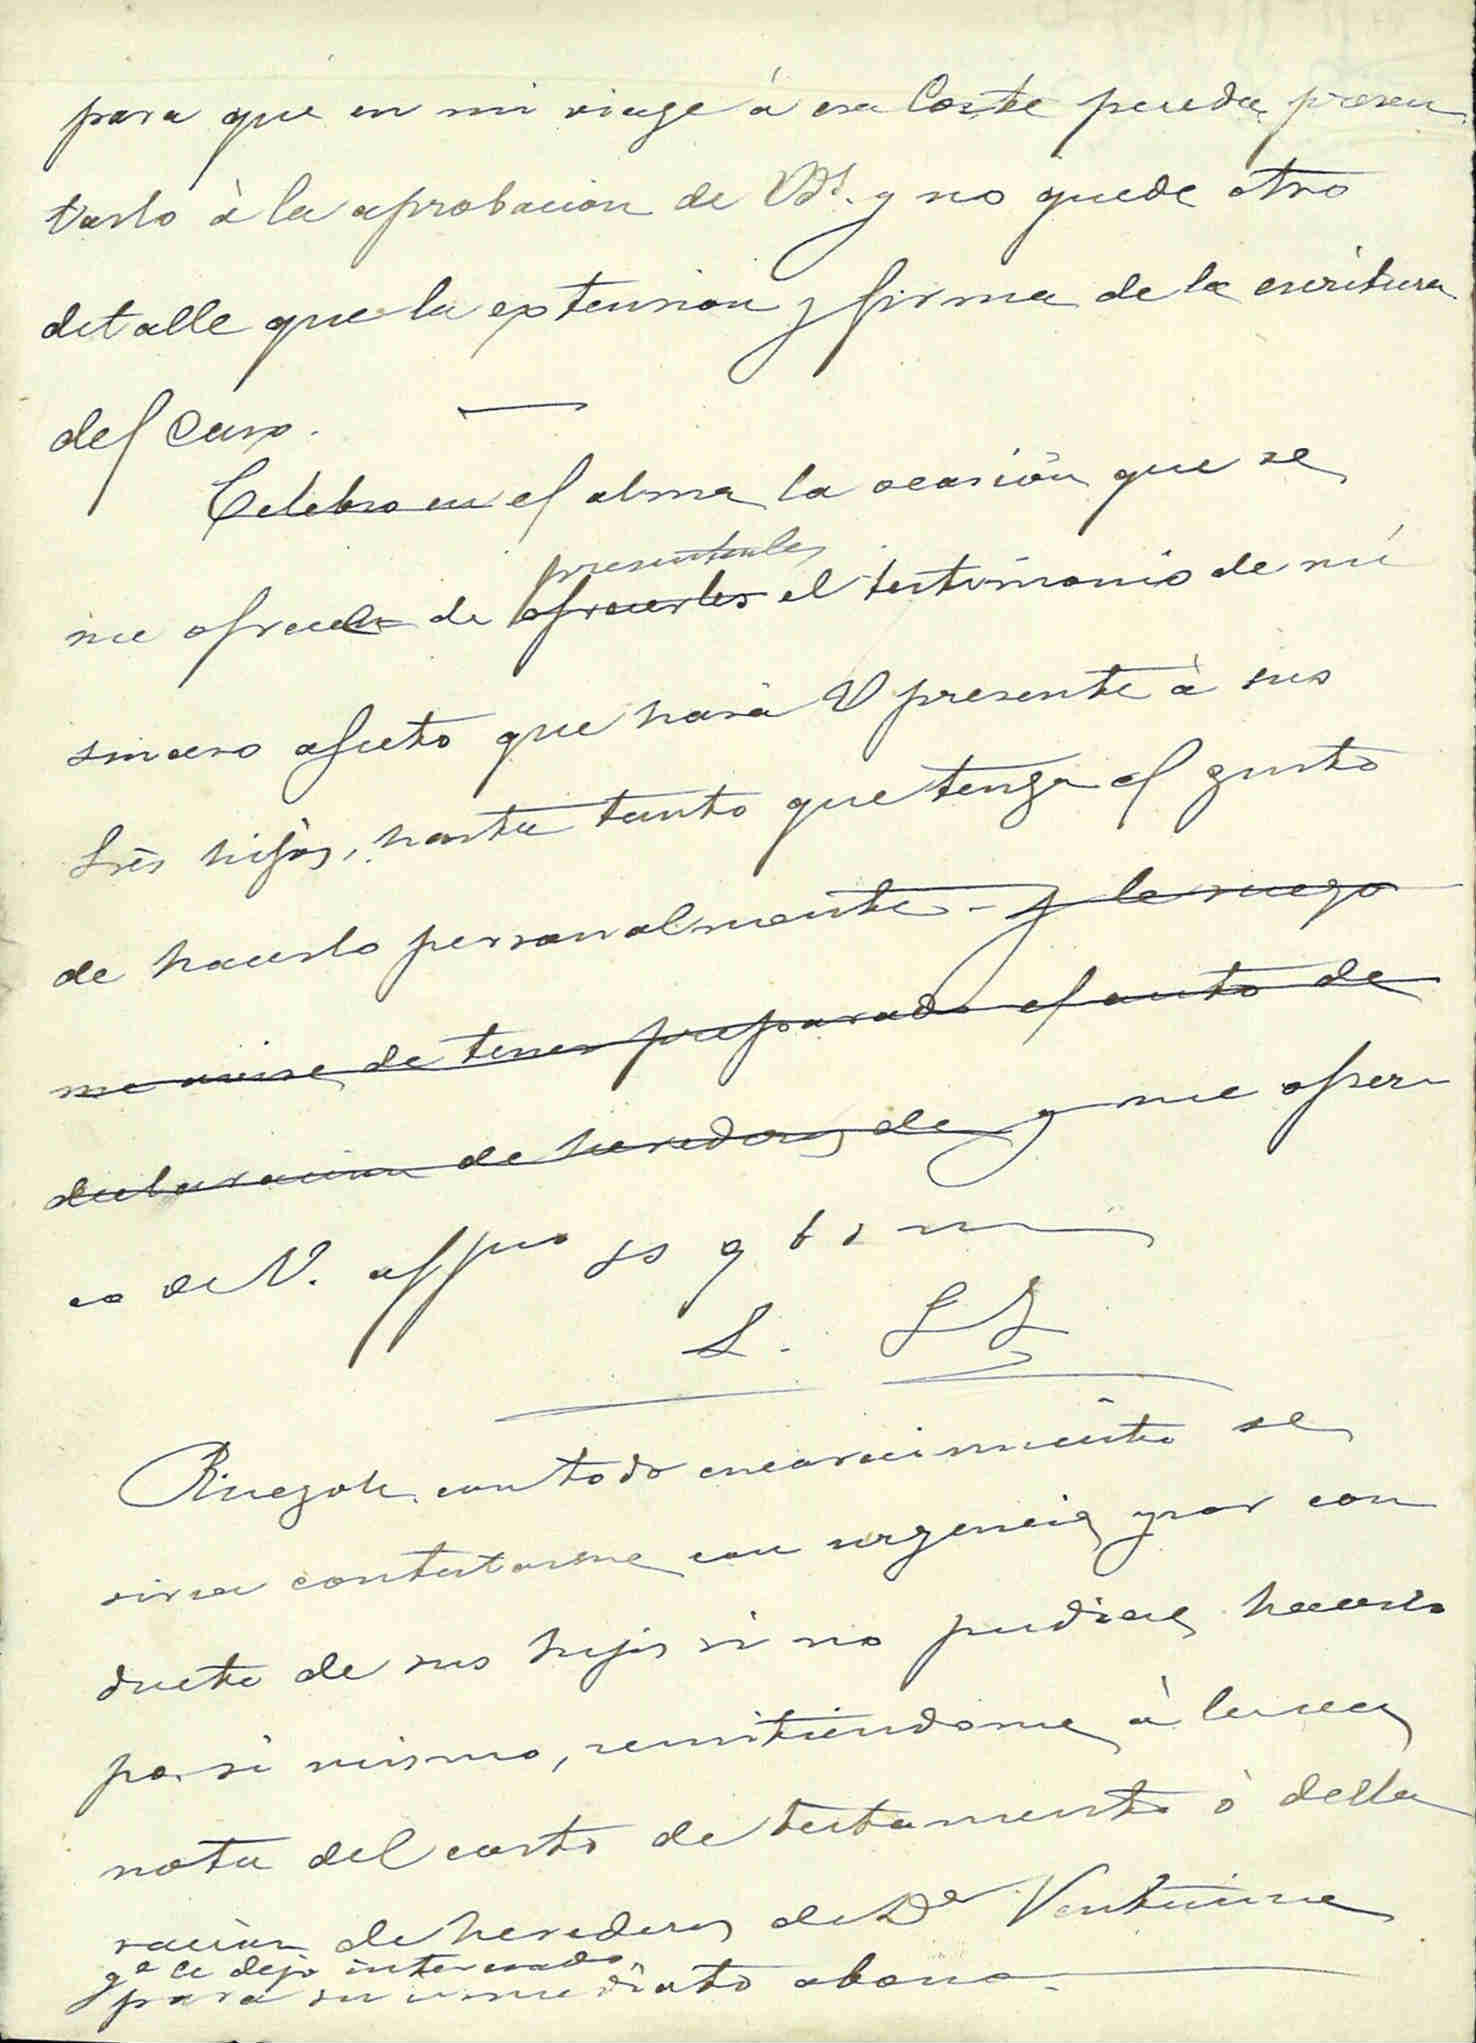 para que en mi viage á esa Corte pueda presen
tarlo á la aprobacion de Vds. y no quede otro
detalle que la extension y firma de la escritura
del caso.
Celebro en el alma la ocasión que se
me ofrece de ofrecerles presentarles el testimonio de mi
sincero afecto que hará V presente á sus
Srs hijos, hasta tanto que tenga el gusto
de hacerlo personalmente - y le ruego
me avise de tener preparado el auto de
declaracion de herederos de y me ofrez-
co de V. affmo ss q b s m
L. 
Ruegole con todo encarecimiento se
sirva contestarme con urgencia y por con
ducto de sus hijos si no pudiera hacerlo
por si mismo, remitiendome á la vez
nota del costo de testamento ó decla
racion de herederos de Dª Ventura
qe le dejo interesado
para su inmediato abono.